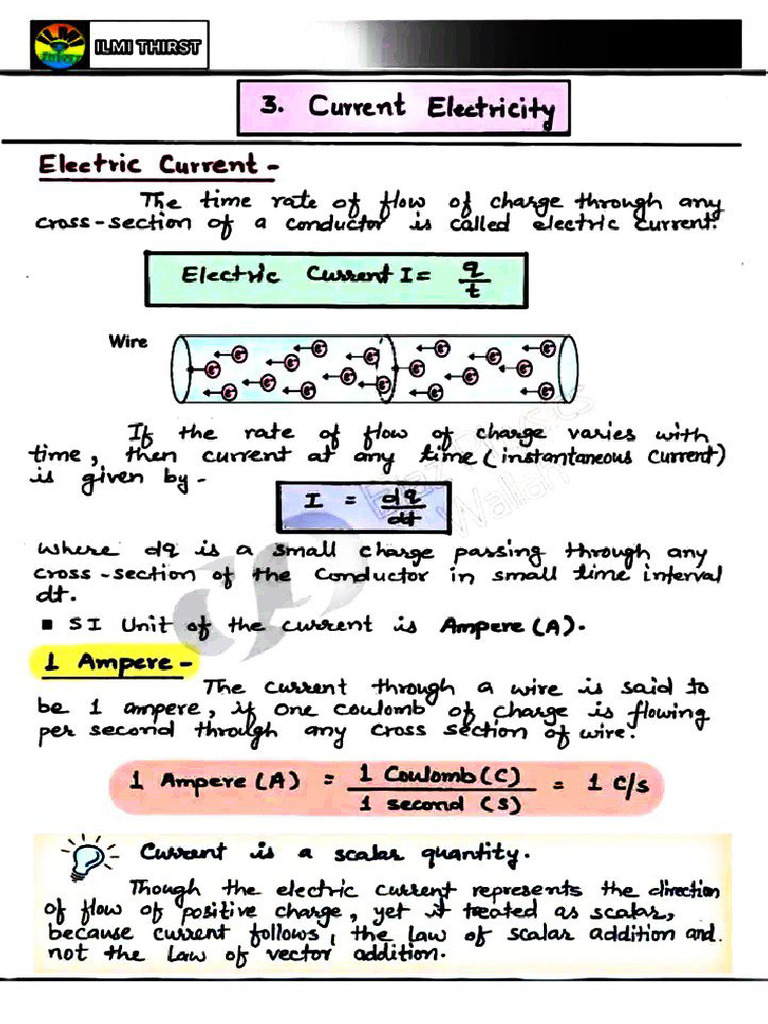 ILMI THIRST
3. Current Electricity
Electric Current -
The time rate of flow of charge through any
cross-section of a conductor is called electric current.
Electric Current I = q/t
Wire
e⁻ e⁻ e⁻ e⁻ e⁻ e⁻ e⁻
e⁻ e⁻ e⁻ e⁻ e⁻ e⁻
e⁻ e⁻ e⁻ e⁻
If the rate of flow of charge varies with
time, then current at any time (instantaneous current)
is given by -
I = dq/dt
where dq is a small charge passing through any
cross-section of the conductor in small time interval
dt.
▪ SI Unit of the current is Ampere (A).
1 Ampere -
The current through a wire is said to
be 1 ampere, if one coulomb of charge is flowing
per second through any cross section of wire.
1 Ampere (A) = 1 Coulomb (C)/1 second (s) = 1 C/s
Current is a scalar quantity.
Though the electric current represents the direction
of flow of positive charge, yet it treated as scalar,
because current follows, the law of scalar addition and
not the law of vector addition.